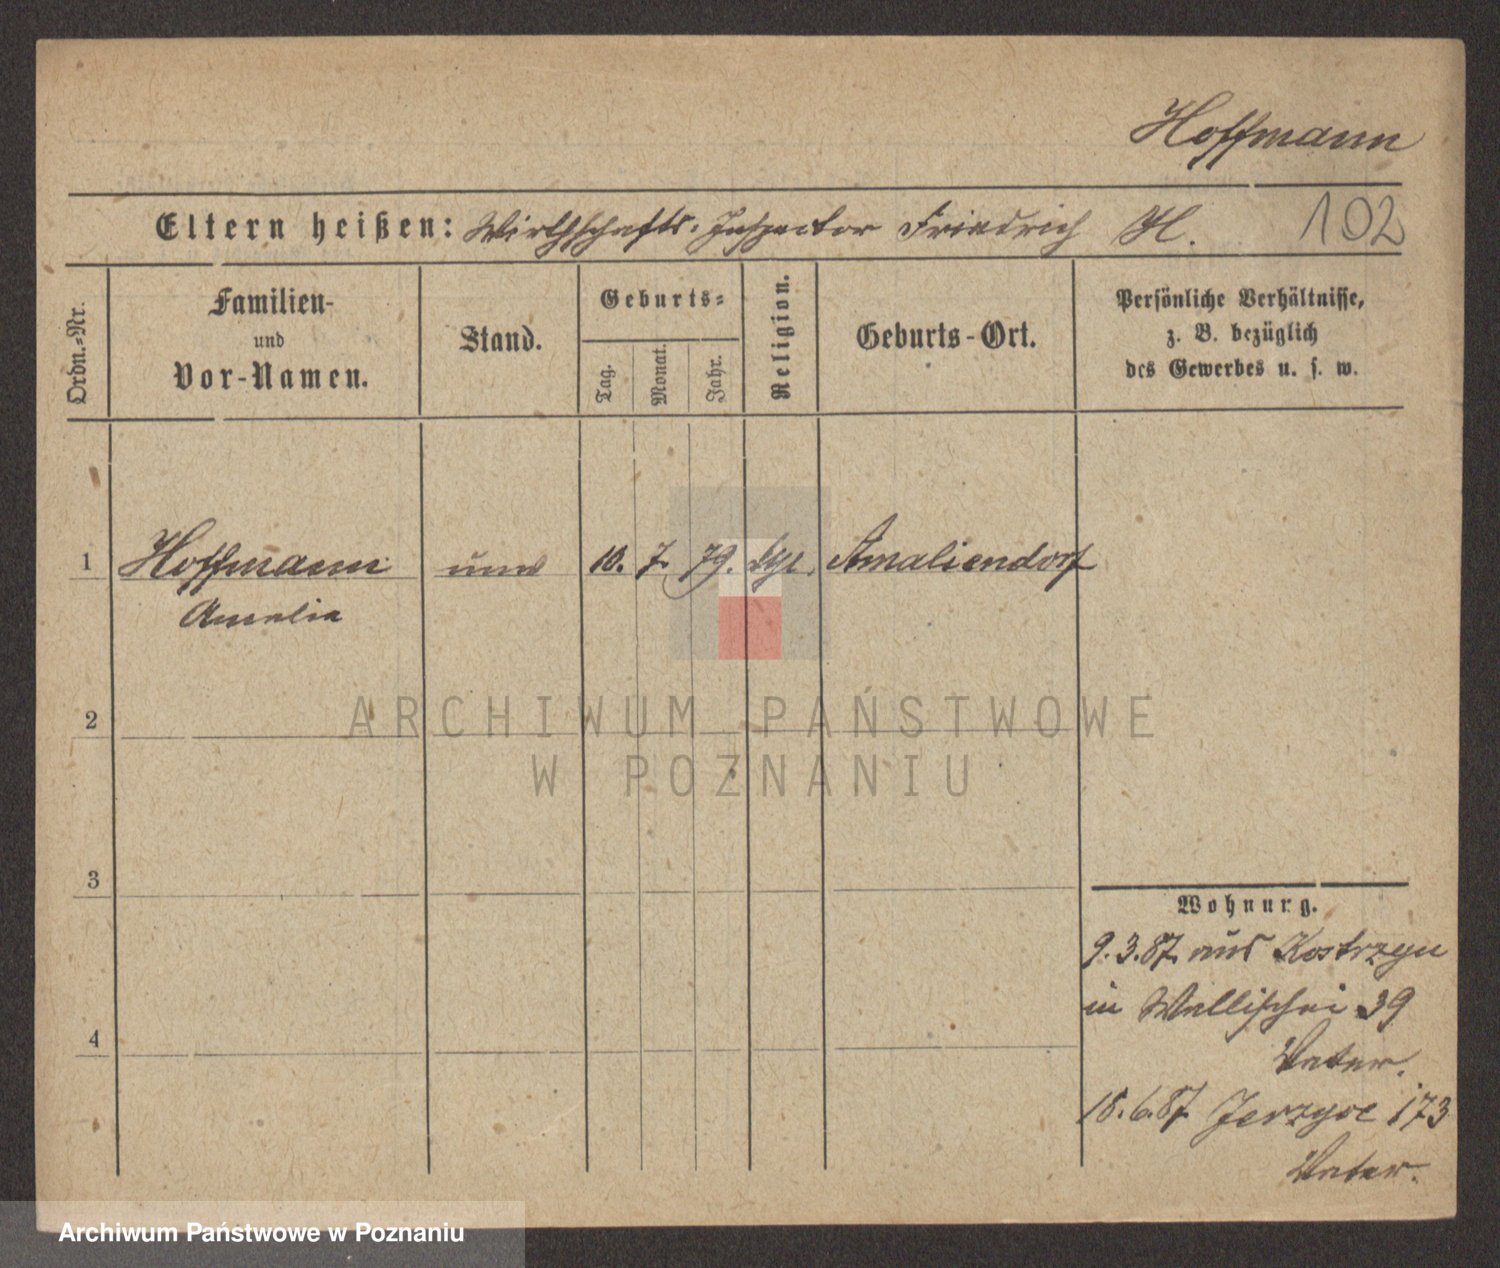 Hoffmann
Eltern heißen: Wirthschafts-Inspector Friedrich H.
102
Ordn.-Nr.
Familien-
und
Vor-Namen.
Stand.
Geburts-
Tag.
Monat.
Jahr.
Religion.
Geburts-Ort.
Persönliche Verhältnisse,
z. B. bezüglich
des Gewerbes u. s. w.
1 Hoffmann unv 10. 7. 79. Amaliendorf
Amalia
2
3
4
Wohnung.
9.3.87. aus Kostrzyn
in Wallischei 39
Vater.
18.6.87 Jerzyce 173
Vater.
ARCHIWUM PAŃSTWOWE
W POZNANIU
Archiwum Państwowe w Poznaniu